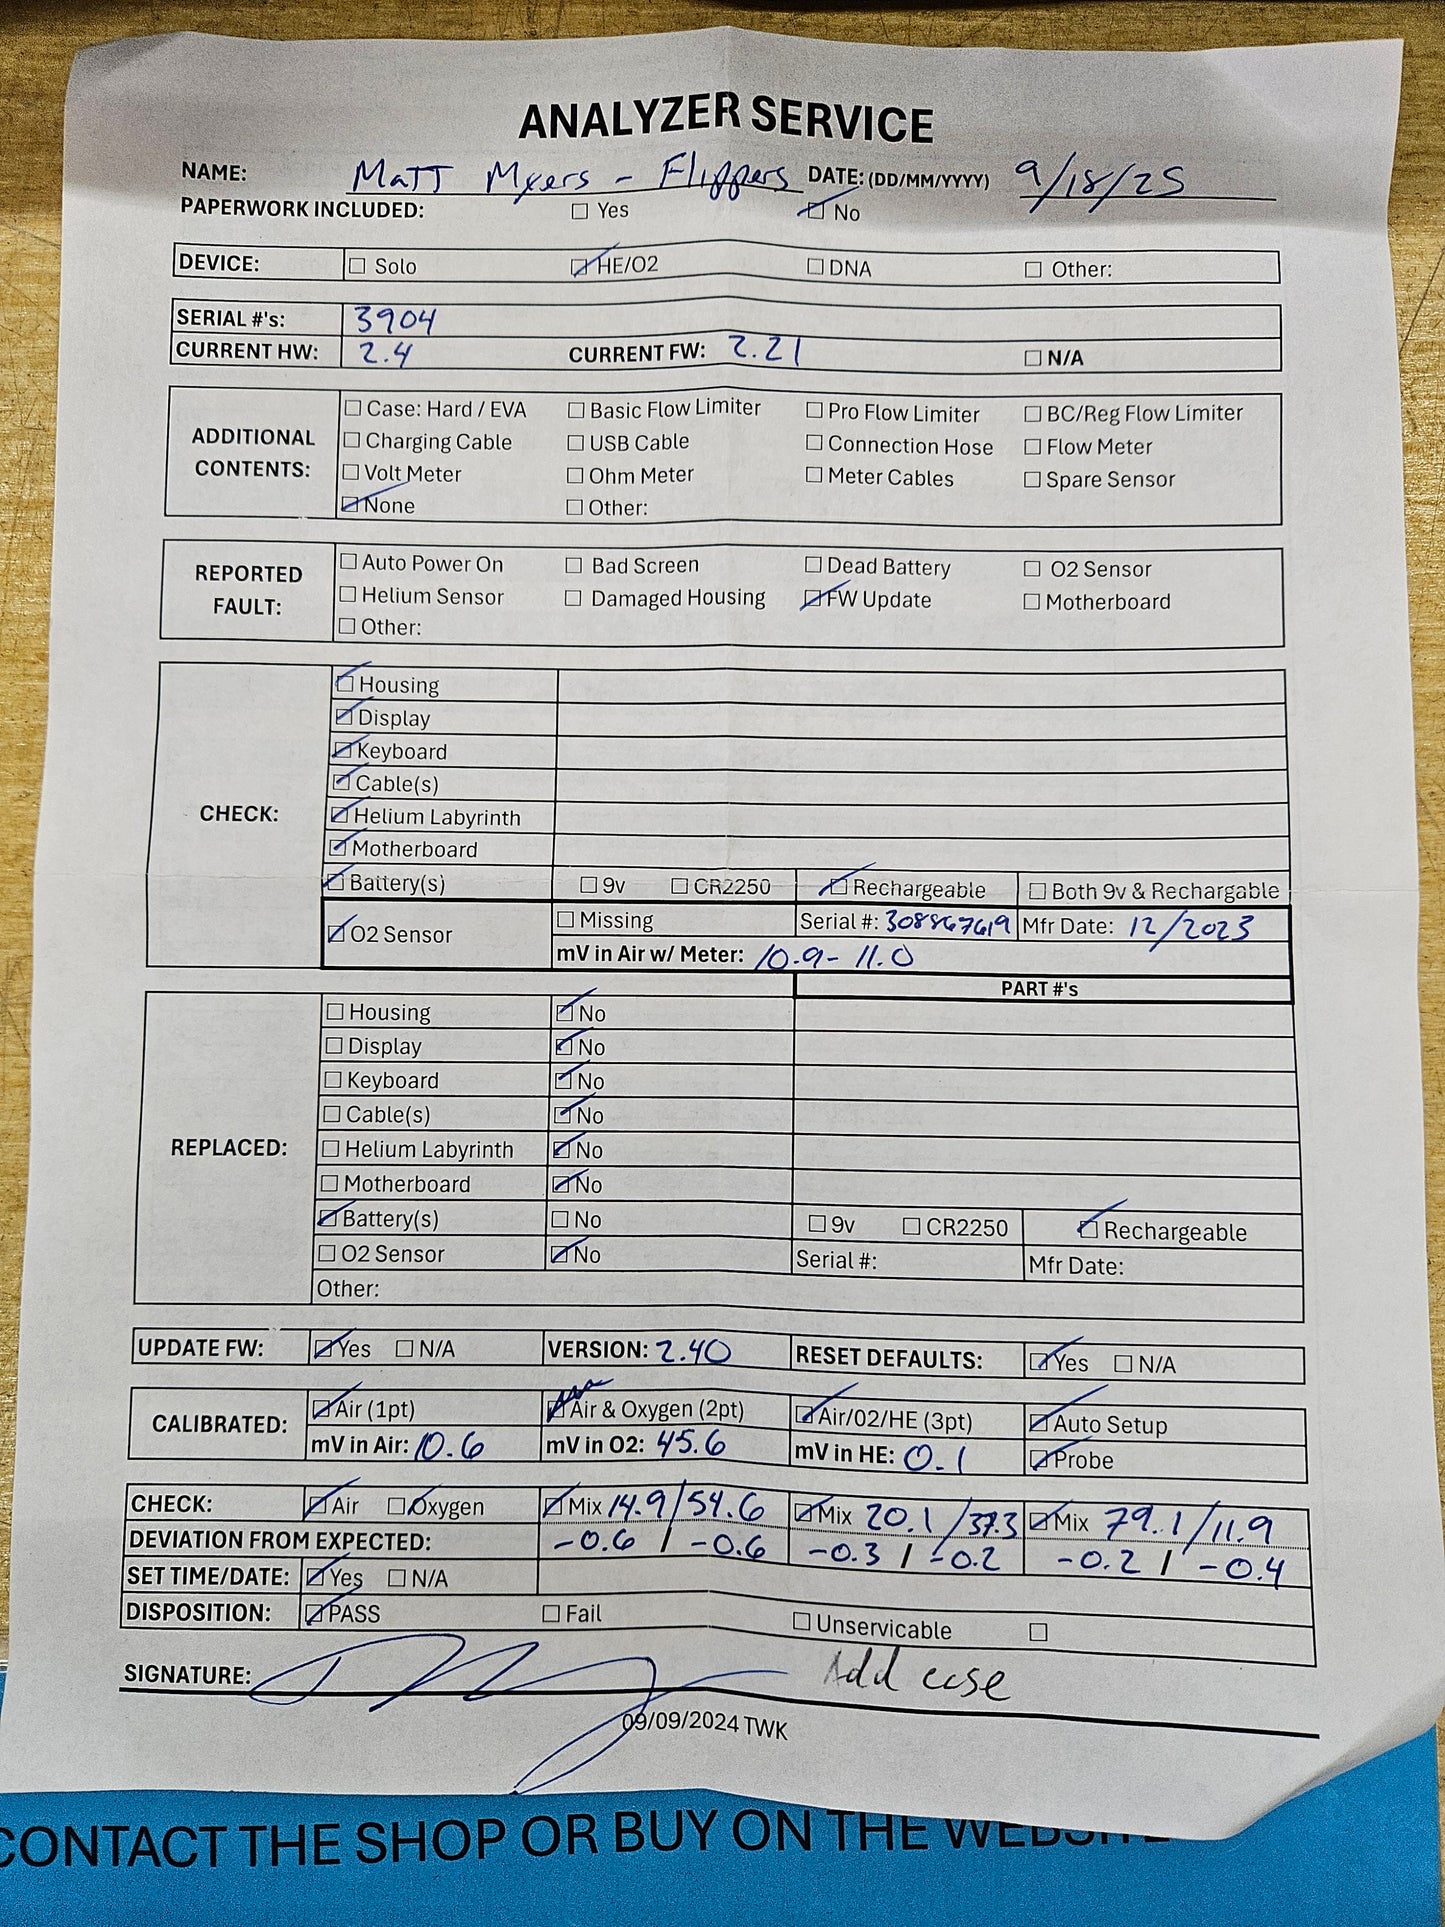 ANALYZER SERVICE
NAME: Matt Myers - Flippers DATE: (DD/MM/YYYY) 9/18/25
PAPERWORK INCLUDED: ☐ Yes ☑ No
DEVICE: ☐ Solo ☑ HE/O2 ☐ DNA ☐ Other:
SERIAL #'s: 3904
CURRENT HW: 2.4 CURRENT FW: 2.21 ☐ N/A
☐ Case: Hard / EVA ☐ Basic Flow Limiter ☐ Pro Flow Limiter ☐ BC/Reg Flow Limiter
ADDITIONAL CONTENTS: ☐ Charging Cable ☐ USB Cable ☐ Connection Hose ☐ Flow Meter
☐ Volt Meter ☐ Ohm Meter ☐ Meter Cables ☐ Spare Sensor
☑ None ☐ Other:
REPORTED FAULT: ☐ Auto Power On ☐ Bad Screen ☐ Dead Battery ☐ O2 Sensor
☐ Helium Sensor ☐ Damaged Housing ☑ FW Update ☐ Motherboard
☐ Other:
CHECK: ☑ Housing
☑ Display
☑ Keyboard
☑ Cable(s)
☑ Helium Labyrinth
☑ Motherboard
☑ Battery(s) ☐ 9v ☐ CR2250 ☑ Rechargeable ☐ Both 9v & Rechargable
☑ O2 Sensor ☐ Missing Serial #: 308867619 Mfr Date: 12/2023
mV in Air w/ Meter: 10.9 - 11.0
PART #'s
REPLACED: ☐ Housing ☑ No
☐ Display ☑ No
☐ Keyboard ☑ No
☐ Cable(s) ☑ No
☐ Helium Labyrinth ☑ No
☐ Motherboard ☑ No
☑ Battery(s) ☐ No ☐ 9v ☐ CR2250 ☑ Rechargeable
☐ O2 Sensor ☑ No Serial #: Mfr Date:
Other:
UPDATE FW: ☑ Yes ☐ N/A VERSION: 2.40 RESET DEFAULTS: ☑ Yes ☐ N/A
CALIBRATED: ☑ Air (1pt) ☑ Air & Oxygen (2pt) ☑ Air/02/HE (3pt) ☑ Auto Setup
mV in Air: 10.6 mV in O2: 45.6 mV in HE: 0.1 ☑ Probe
CHECK: ☑ Air ☑ Oxygen ☑ Mix 14.9/54.6 ☑ Mix 20.1/37.3 ☑ Mix 79.1/11.9
DEVIATION FROM EXPECTED: -0.6 / -0.6 -0.3 / -0.2 -0.2 / -0.4
SET TIME/DATE: ☑ Yes ☐ N/A
DISPOSITION: ☑ PASS ☐ Fail ☐ Unservicable ☐
SIGNATURE: Add case
09/09/2024 TWK
CONTACT THE SHOP OR BUY ON THE WEBSITE